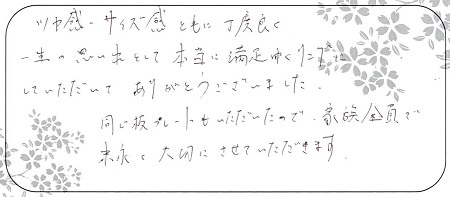 ツヤ感・サイズ感ともに丁度良く
一生の思い出として本当に満足ゆくリングに
していただいてありがとうございました。
同じ板プレートもいただいたので、家族全員で
末永く大切にさせていただきます。